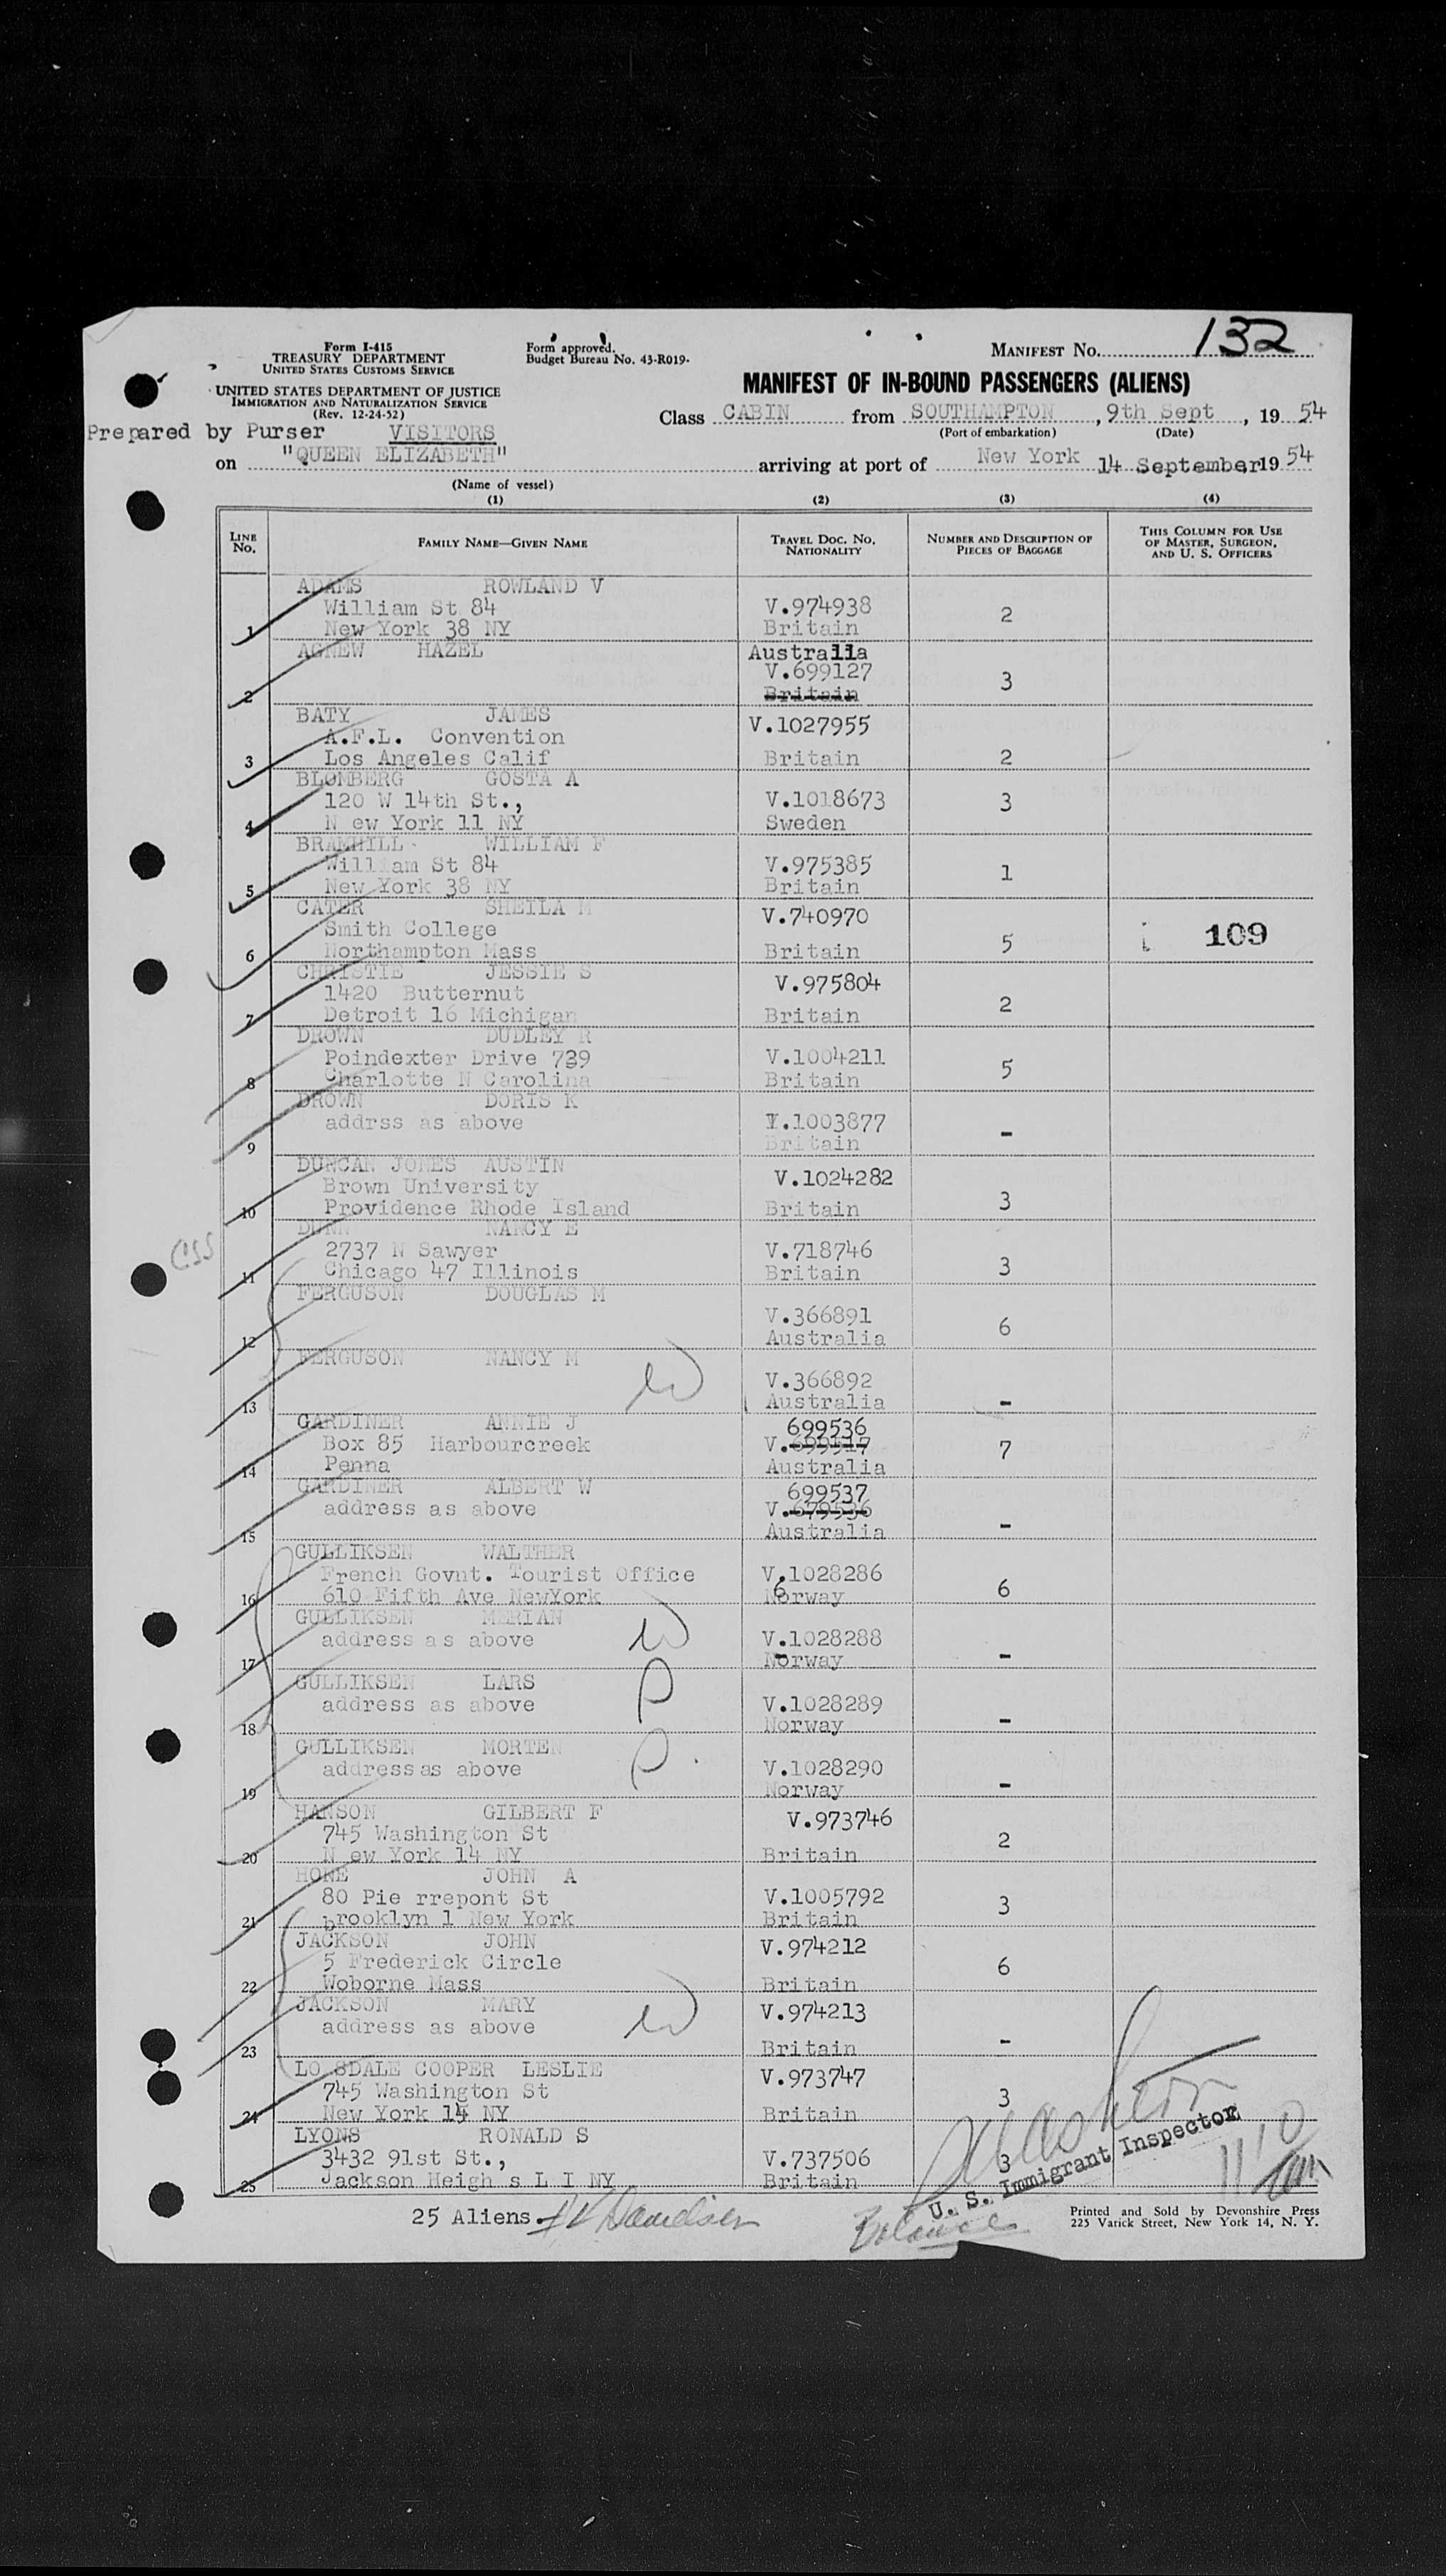 132
Form I-415
TREASURY DEPARTMENT
UNITED STATES CUSTOMS SERVICE
Form approved.
Budget Bureau No. 43-R019-
MANIFEST NO.
UNITED STATES DEPARTMENT OF JUSTICE
IMMIGRATION AND NATURALIZATION SERVICE
(Rev. 12-24-52)
MANIFEST OF IN-BOUND PASSENGERS (ALIENS)
Class CABIN from SOUTHAMPTON, 9th Sept, 19 54
(Port of embarkation) (Date)
Prepared by Purser VISITORS
on "QUEEN ELIZABETH" arriving at port of New York 14 September 19 54
(Name of vessel)
(1) (2) (3) (4)
LINE NO. FAMILY NAME—GIVEN NAME TRAVEL DOC. NO. NATIONALITY NUMBER AND DESCRIPTION OF PIECES OF BAGGAGE THIS COLUMN FOR USE OF MASTER, SURGEON, AND U. S. OFFICERS
ADAMS ROWLAND V
William St 84 V.974938 2
1 New York 38 NY Britain
AGNEW HAZEL Australia
V.699127 3
2 Britain
BATY JAMES V.1027955
A.F.L. Convention
3 Los Angeles Calif Britain 2
BLOMBERG GOSTA A
120 W 14th St., V.1018673 3
4 N ew York 11 NY Sweden
BRAMHILL WILLIAM F
William St 84 V.975385 1
5 New York 38 NY Britain
CATER SHEILA M V.740970
Smith College 109
6 Northampton Mass Britain 5
CHRISTIE JESSIE S V.975804
1420 Butternut 2
7 Detroit 16 Michigan Britain
DROWN DUDLEY R
Poindexter Drive 739 V.1004211 5
8 Charlotte N Carolina Britain
DROWN DORIS K
addrss as above V.1003877 -
9 Britain
DUNCAN JONES AUSTIN V.1024282
Brown University
10 Providence Rhode Island Britain 3
DUNN NANCY E
CSS 2737 N Sawyer V.718746
11 Chicago 47 Illinois Britain 3
FERGUSON DOUGLAS M
V.366891 6
12 Australia
FERGUSON NANCY M W
V.366892
13 Australia -
GARDINER ANNIE J 699536
Box 85 Harbourcreek V.699517 7
14 Penna Australia
GARDINER ALBERT W 699537
address as above V.679536
15 Australia -
GULLIKSEN WALTHER
French Govnt. Tourist Office V.1028286 6
16 610 Fifth Ave NewYork 6 Norway
GULLIKSEN MERIAN
address as above W V.1028288
17 Norway -
GULLIKSEN LARS P
address as above V.1028289
18 Norway -
GULLIKSEN MORTEN P.
address as above V.1028290
19 Norway -
HANSON GILBERT F V.973746
745 Washington St 2
20 N ew York 14 NY Britain
HONE JOHN A
80 Pie rrepont St V.1005792 3
21 brooklyn 1 New York Britain
JACKSON JOHN V.974212
5 Frederick Circle 6
22 Woborne Mass Britain
JACKSON MARY V.974213
address as above W
23 Britain -
LO SDALE COOPER LESLIE V.973747
745 Washington St 3
24 New York 14 NY Britain
LYONS RONALD S
3432 91st St., V.737506 3
25 Jackson Heigh s L I NY Britain
U. S. Immigrant Inspector
25 Aliens
Balance
Printed and Sold by Devonshire Press
225 Varick Street, New York 14, N. Y.